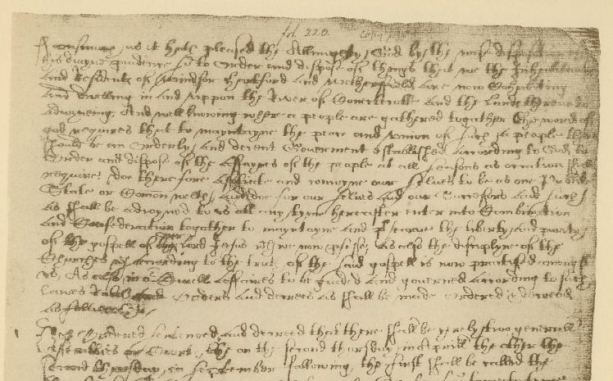 fol. 220. Copy
Forasmuch as it hath pleased the Allmighty God by the wise disposition
his divyne pruidence so to Order and dispose of things that we the Inhabitants
and Residents of Windsor Harteford and Wethersfield are now Cohabiting
and dwelling in and uppon the River of Conectecotte and the Lands thereunto
adioyneing; And well knowing where a people are gathered together the word of
god requires that to mayntayne the peace and union of such a people there
should be an orderly and decent Goverment established according to God, to
Order and dispose of the affayres of the people at all seasons as occation shall
require; doe therefore assotiate and conioyne our selves to be as one Publike
State or Comonwelth; and doe for our selves and our Successors and such
as shall be adioyned to us att any tyme hereafter enter into Combination
and Confederation together to mayntayne and pr the liberty and purity
of the gospell of our Lord Jesus wch we now prfesse, As also the disciplyne of the
Churches wch according to the truth of the said gospell is now practised amongst
us; As also in our Civell Affaires to be guided and governed according to such
Lawes Rules Orders and decrees as shall be made Ordered & decreed
as followeth:
It is Ordered sentenced and decreed that there shall be yerely two generall
Assemblies or Courts, the on the second thursday in Aprill the other the
second thursday in September following, the first shall be called the